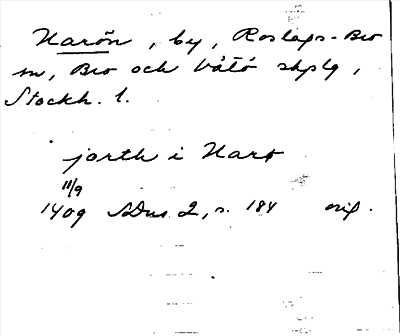 Narön, by, Roslags-Bro
sn, Bro och Vätö skplg,
Stockh. l.
jorth i Narø
11/9
1409 SDns 2, s. 184 orig.